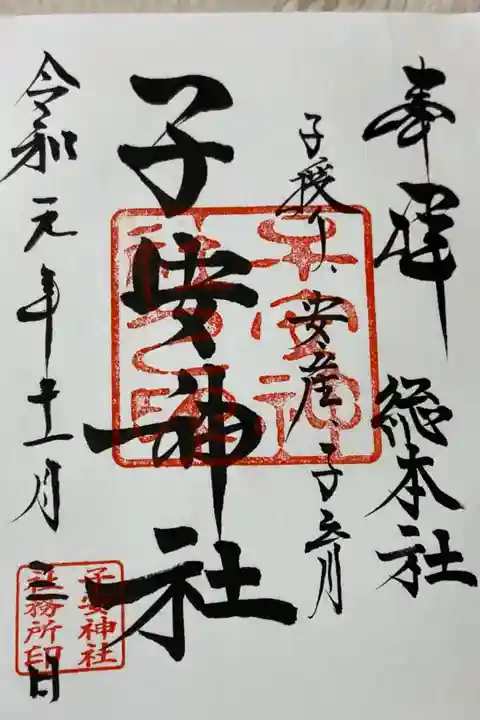 奉拝 総本社
子授け、安産、子育
子安神社
令和元年十一月三日
子安神社
社務所印